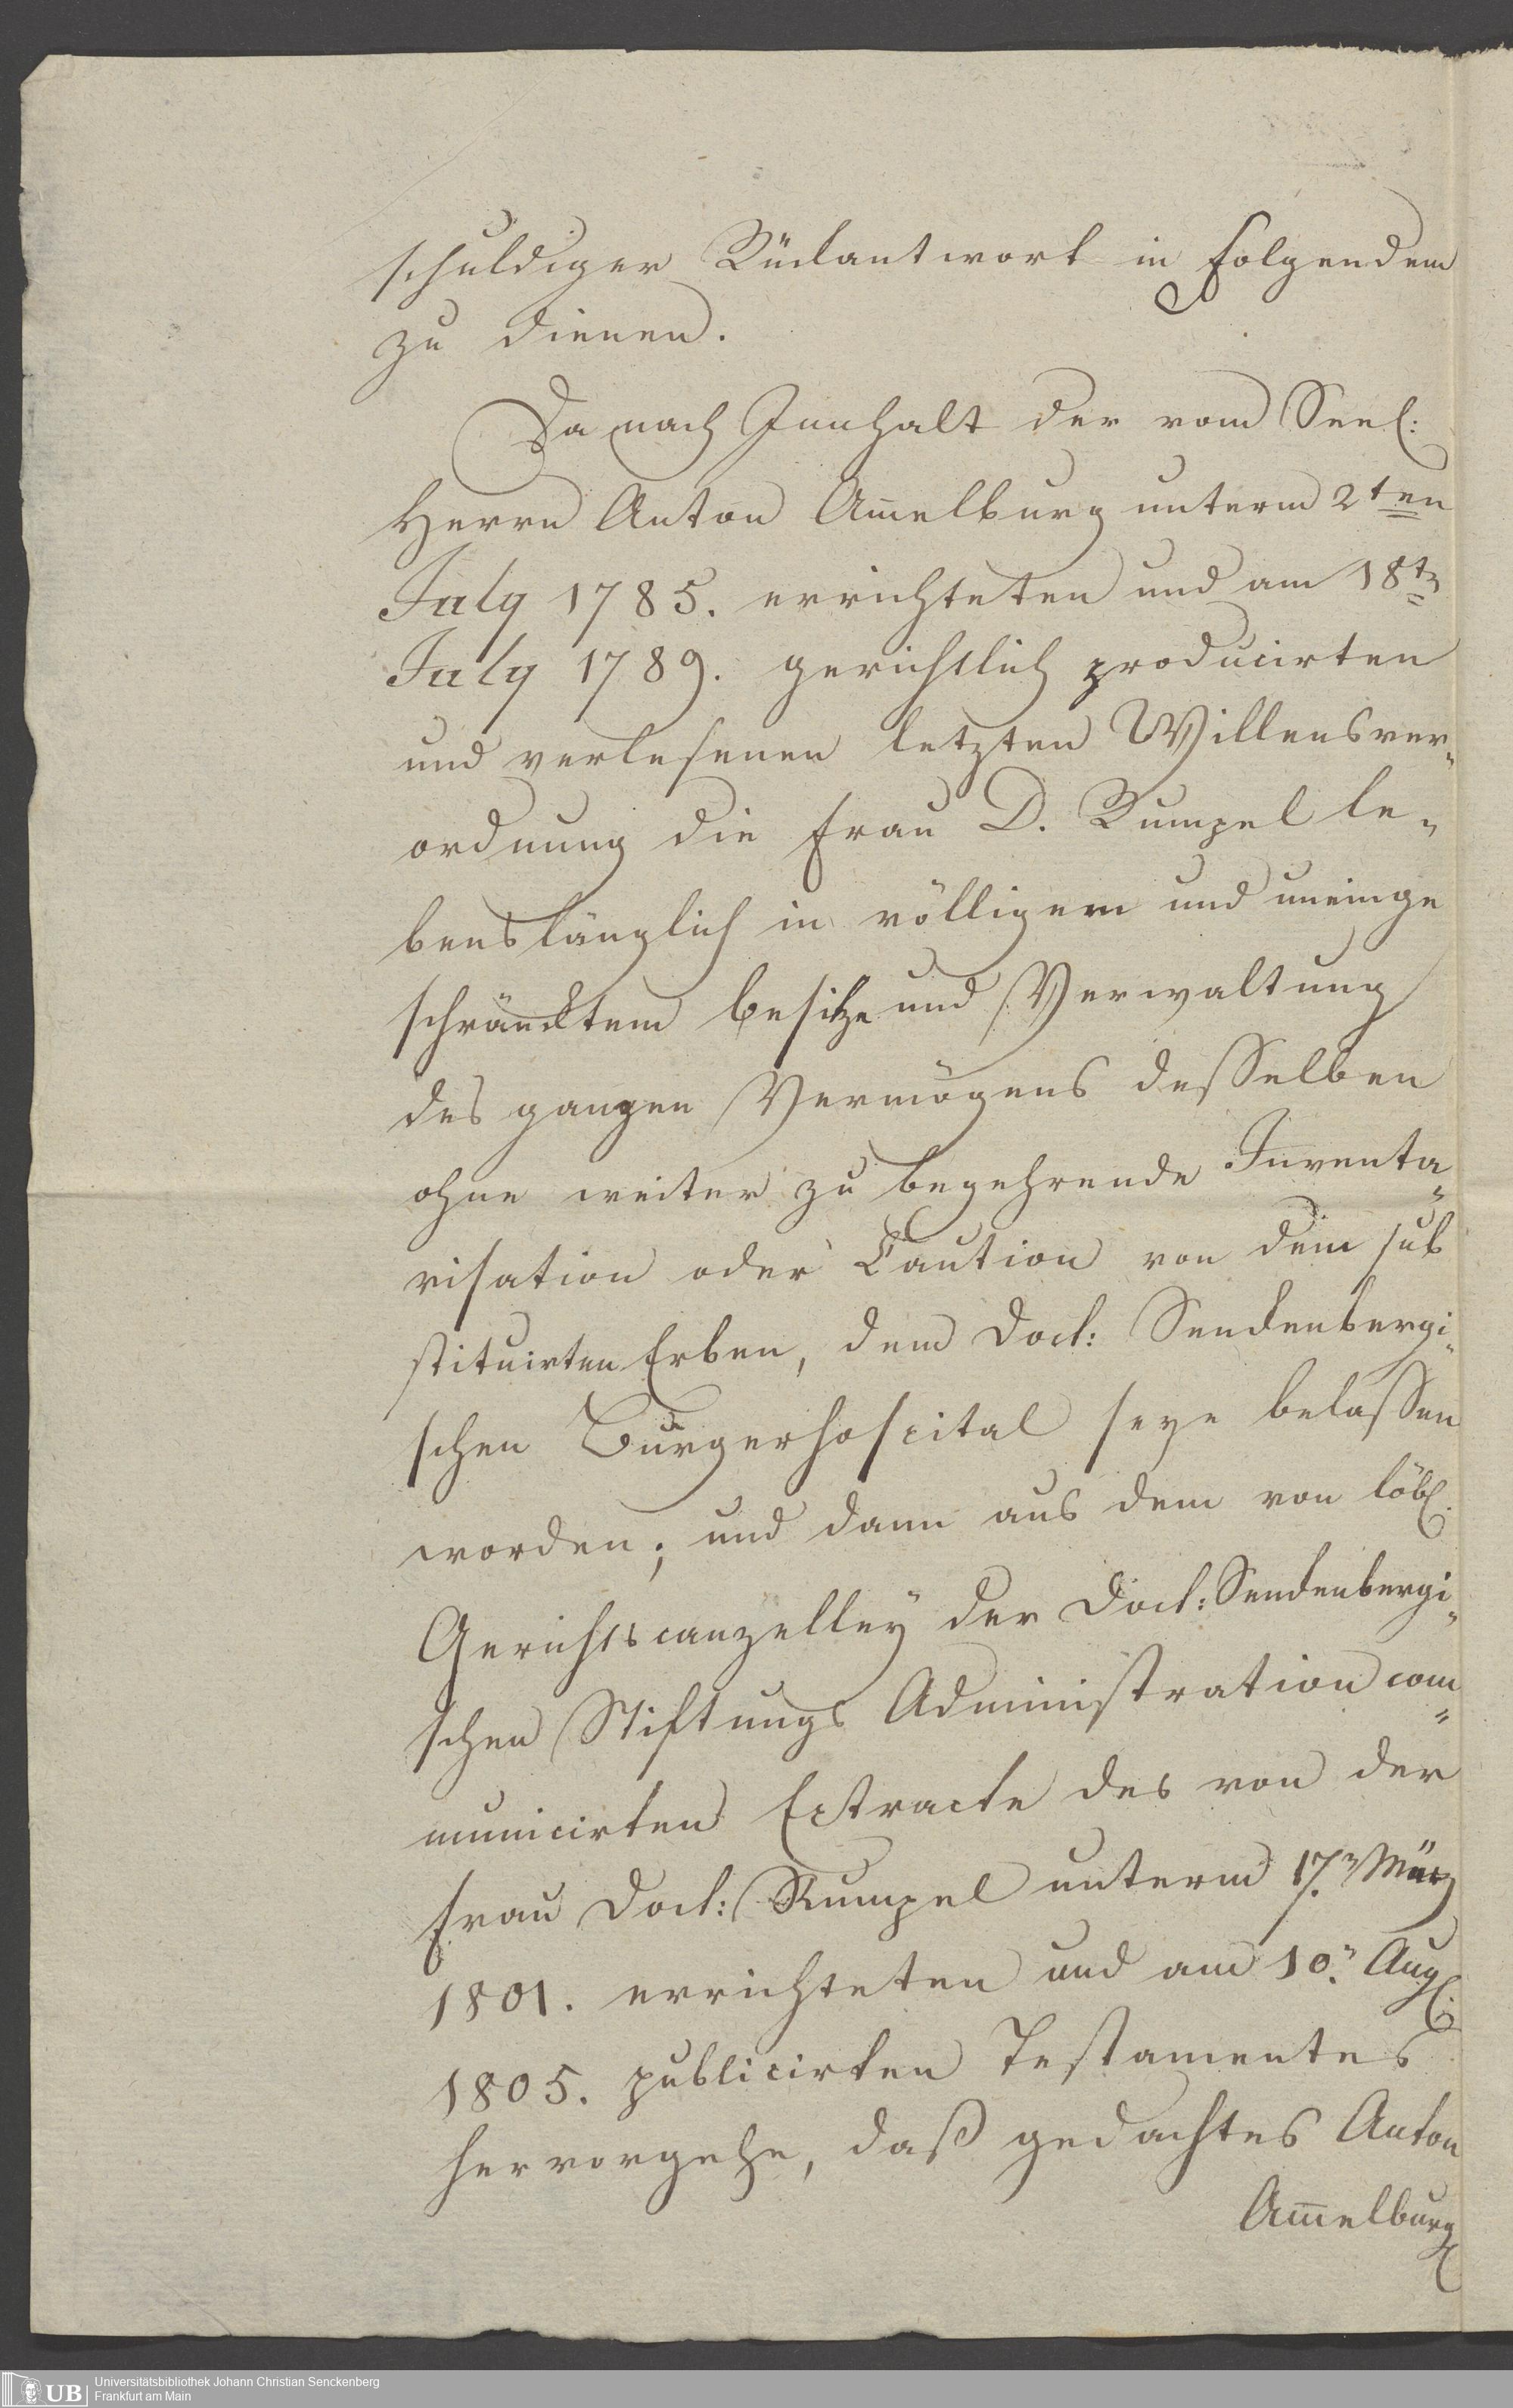 schuldiger Rückantwort in folgendem
zu dienen.
Da nach Innhalt der vom Seel:
Herrn Anton Am̅elburg unterm 2ten
July 1785. errichteten und am 18tn
July 1789. gerichtlich producirten
und verlesenen letzten Willensver„
ordnung die Frau D. Rumpel le„
benslänglich in völligem und uneinge
schränktem besitze und Verwaltung
des ganzen Vermögens desselben
ohne weiter zu begehrende Inventa„
risation oder Caution von dem sub
stituirten Erben, dem Doct: Senckenbergi„
schen Burgerhospital seye belassen
worden; und dann aus dem von löbl.
Gerichtscanzelley der Doct: Senckenbergi„
schen Stiftungs Administration com„
municirten Extracte des von der
Frau Doct: Rumpel unterm 17.n März
1801. errichteten und am 10.n Aug.
1805. publicirten Testamentes
hervorgehe, daß gedachtes Anton
Am̅elburg
UB
Universitätsbibliothek Johann Christian Senckenberg
Frankfurt am Main